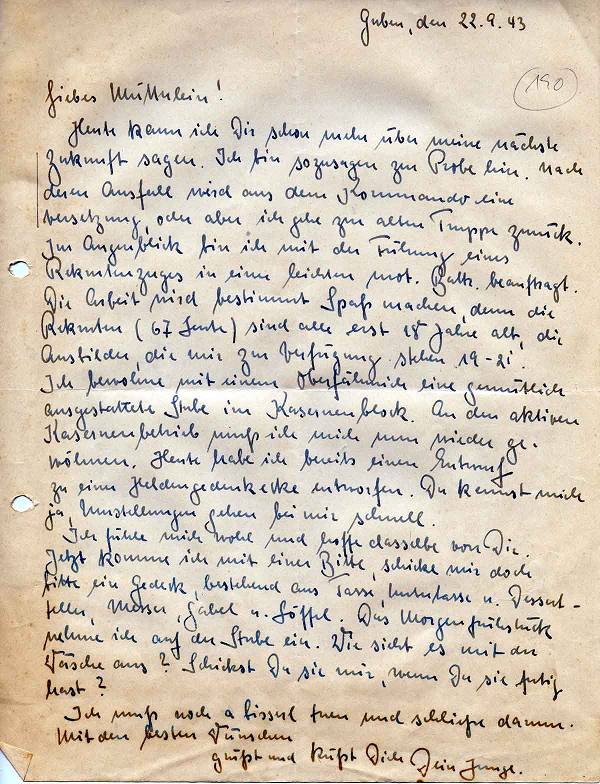 Guben, den 22.9.43
190
Liebes Muttilein!
Heute kann ich Dir schon mehr über meine nächste
Zukunft sagen. Ich bin sozusagen zur Probe hier. Nach
deren Ausfall wird aus dem Kommando eine
Versetzung, oder aber ich gehe zur alten Truppe zurück.
Im Augenblick bin ich mit der Führung eines
Rekrutenzuges in einer leichten mot. Battr. beauftragt.
Die Arbeit wird bestimmt Spaß machen, denn die
Rekruten (67 Leute) sind alle erst 18 Jahre alt, die
Ausbilder, die mir zur Verfügung stehen 19-21.
Ich bewohne mit einem Oberfähnrich eine gemütlich
ausgestattete Stube im Kasernenblock. An den aktiven
Kasernenbetrieb muß ich mich nun wieder ge-
wöhnen. Heute habe ich bereits einen Entwurf
zu einer Heldengedenkecke entworfen. Du kennst mich
ja, Umstellungen gehen bei mir schnell.
Ich fühle mich wohl und hoffe dasselbe von Dir.
Jetzt komme ich mit einer Bitte, schicke mir doch
bitte ein Gedeck, bestehend aus Tasse, Untertasse u. Dessert-
teller, Messer, Gabel u. Löffel. Das Morgenfrühstück
nehme ich auf der Stube ein. Wie sieht es mit der
Wäsche aus? Schickst Du sie mir, wenn Du sie fertig
hast?
Ich muß noch a bisserl tuen und schließe darum.
Mit den besten Wünschen
grüßt und küßt Dich Dein Junge.